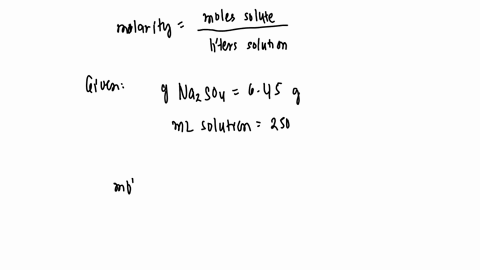 molarity = moles solute / liters solution
Given: g Na₂SO₄ = 6.45 g
mL solution = 250
mo